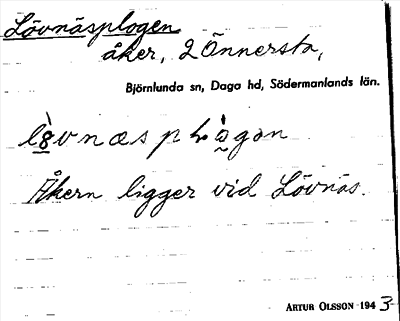 Lövnäsplogen
åker, 2 Önnersta,
Björnlunda sn, Daga hd, Södermanlands län.
Åkern ligger vid Lövnäs.
ARTUR OLSSON 1943